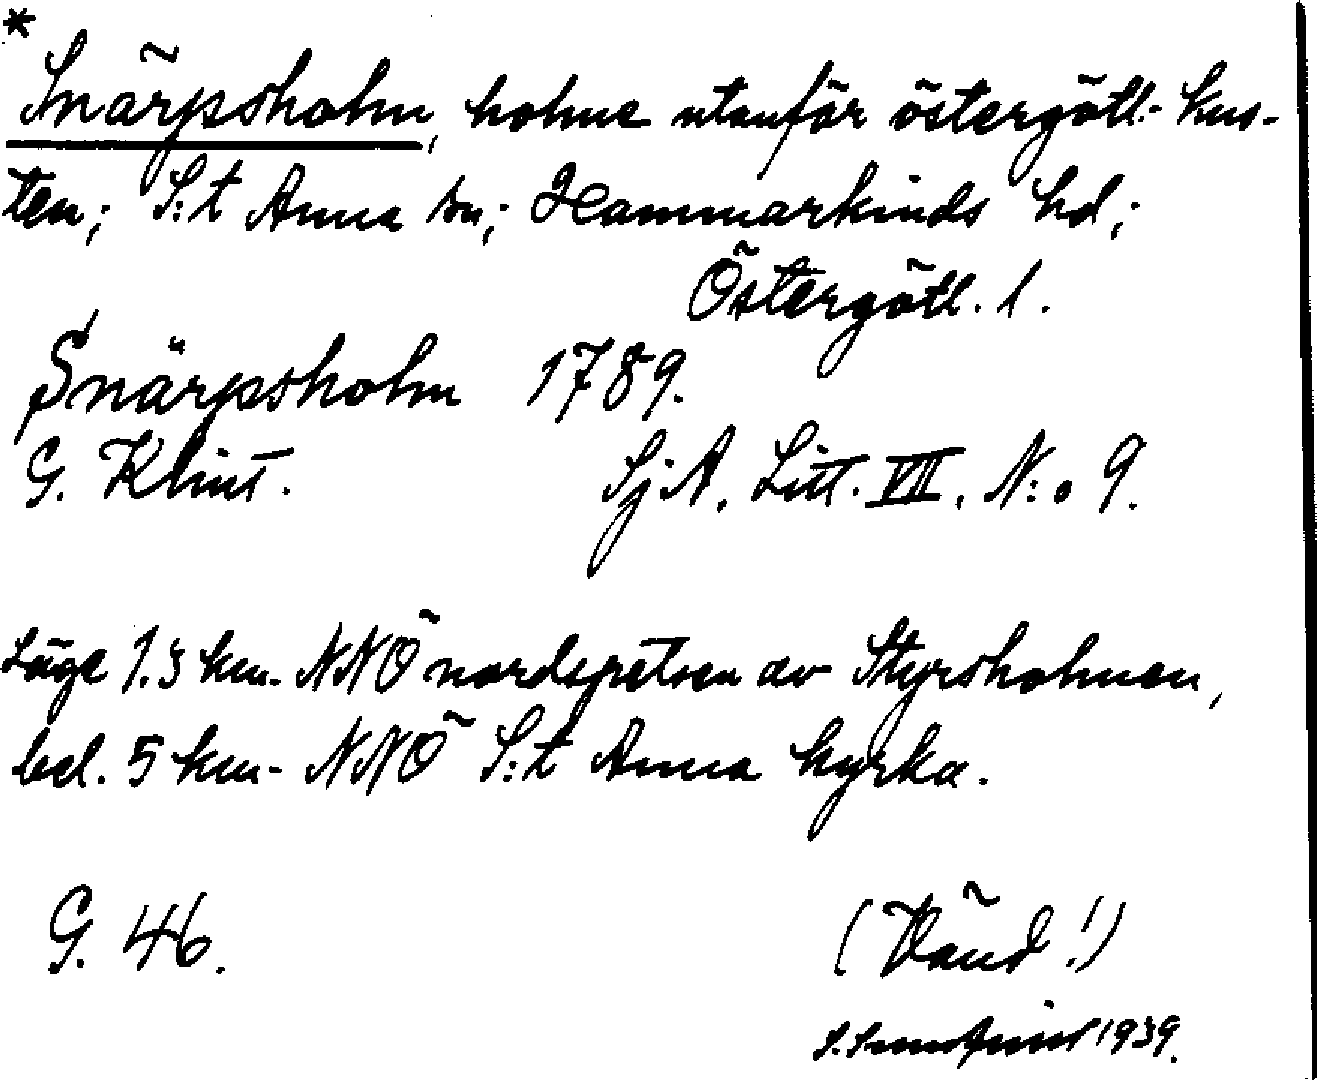 *
Snärpsholm, holme utanför östergötl. kus-
ten; S:t Anna sn; Hammarkinds hd;
Östergötl. l.
Snärpsholm 1789.
G. Klint. SjA. Litt. VII. N:o 9.
Läge 1.3 km. NNÖ nordspetsen av Styrsholmen,
bel. 5 km. NNÖ S:t Anna kyrka.
G. 46. (Vänd!)
S. 1939.